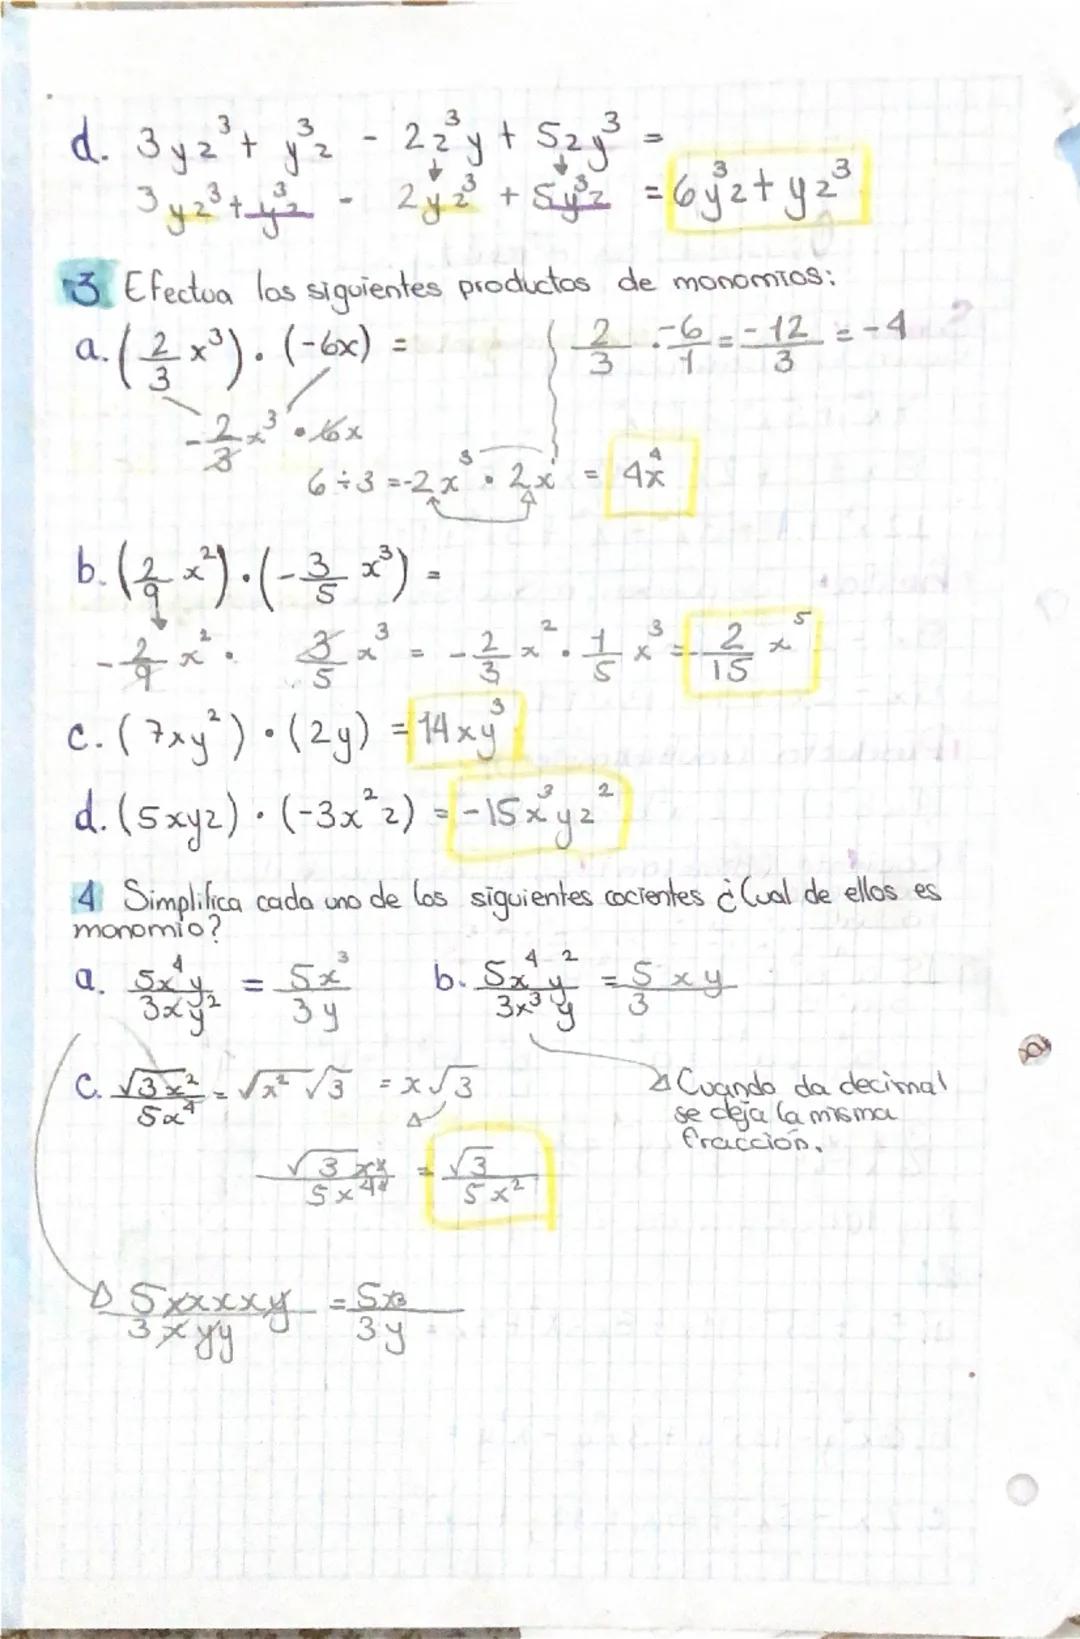 d. 3yz³ + y³z - 2z³y + 5zy³ =
3yz³ + y³z - 2yz³ + 5y³z = 6y³z + yz³
3 Efectua los siguientes productos de monomios:
a. (2/3 x³) · (-6x) =
2/3 · -6/1 = -12/3 = -4
-2/3 x³ · 6x
6 ÷ 3 = -2x³ · 2x = 4x⁴
b. (2/9 x²) · (-3/5 x³) =
-2/9 x² · 3/5 x³ = -2/3 x² · 1/5 x³ = -2/15 x⁵
c. (7xy²) · (2y) = 14xy³
d. (5xyz) · (-3x²z) = -15x³yz²
4 Simplifica cada uno de los siguientes cocientes ¿Cual de ellos es
monomio?
a. 5x⁴y/3xy² = 5x³/3y
b. 5x⁴y²/3x³y = 5/3 xy
c. √3x²/5x⁴ = √x² √3 = x√3
Cuando da decimal
se deja la misma
fracción.
√3 x/5x⁴ = √3/5x²
5xxxxy/3xyy = 5x3/3y